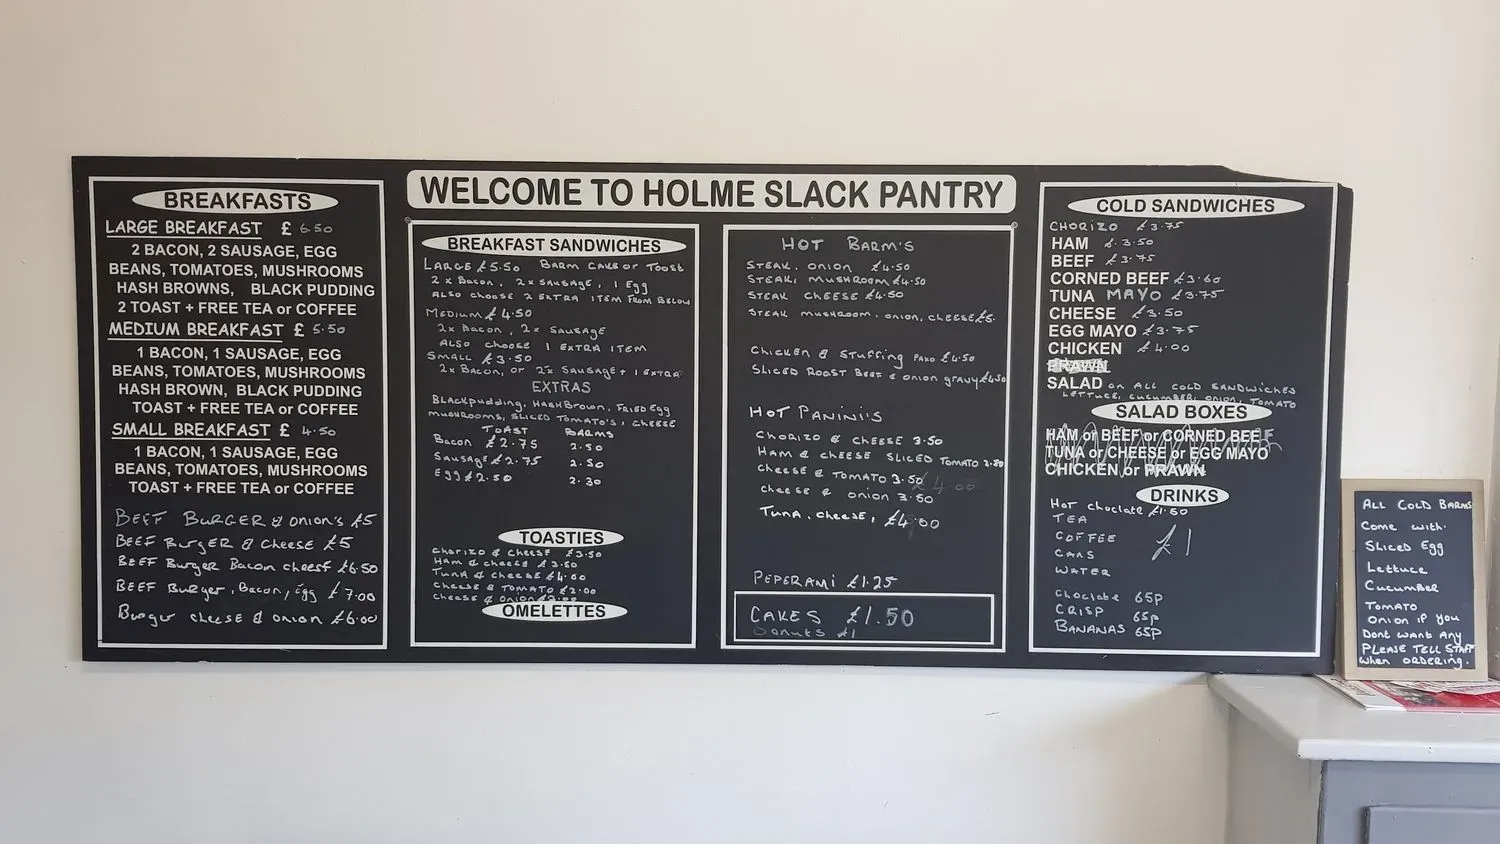 WELCOME TO HOLME SLACK PANTRY
BREAKFASTS
LARGE BREAKFAST £ 6.50
2 BACON, 2 SAUSAGE, EGG
BEANS, TOMATOES, MUSHROOMS
HASH BROWNS, BLACK PUDDING
2 TOAST + FREE TEA or COFFEE
MEDIUM BREAKFAST £ 5.50
1 BACON, 1 SAUSAGE, EGG
BEANS, TOMATOES, MUSHROOMS
HASH BROWN, BLACK PUDDING
TOAST + FREE TEA or COFFEE
SMALL BREAKFAST £ 4.50
1 BACON, 1 SAUSAGE, EGG
BEANS, TOMATOES, MUSHROOMS
TOAST + FREE TEA or COFFEE
BEEF BURGER & onion's £5
BEEF BURGER & Cheese £5
BEEF Burger Bacon cheese £6.50
BEEF Burger, Bacon, Egg £7.00
Burger cheese & onion £6.00
BREAKFAST SANDWICHES
LARGE £5.50 BARM CAKE or TOAST
2 x Bacon, 2x SAUSAGE, 1 Egg
ALSO choose 2 EXTRA ITEM FROM BELOW
MEDIUM £4.50
2x Bacon, 2x SAUSAGE
ALSO choose 1 EXTRA ITEM
SMALL £3.50
2x Bacon, or 2x SAUSAGE + 1 EXTRA
EXTRAS
Blackpudding, HASHBrown, FRIED Egg
mushrooms, SLICED TOMATO'S, CHEESE
TOAST BARMS
Bacon £2.75 2.50
Sausage £2.75 2.50
Egg £2.50 2.30
TOASTIES
Chorizo & Cheese £3.50
Ham & cheese £3.50
Tuna & cheese £4.00
Cheese & TOMATO £2.00
Cheese & Onion
OMELETTES
HOT BARM'S
STEAK, onion £4.50
STEAK, mushroom £4.50
STEAK cheese £4.50
STEAK mushroom. onion, cheese £5.
Chicken & Stuffing PAXO £4.50
SLICED ROAST BEEF & onion gravy £4.50
HOT PANINI'S
CHORIZO & CHEESE 3.50
HAM & cheese SLICED TOMATO
cheese & TOMATO 3.50 £4.00
cheese & onion 3.50
Tuna, cheese, £4.00
PEPERAMI £1.25
CAKES £1.50
Donuts £1
COLD SANDWICHES
CHORIZO £3.75
HAM £3.50
BEEF £3.75
CORNED BEEF £3.60
TUNA MAYO £3.75
CHEESE £3.50
EGG MAYO £3.75
CHICKEN £4.00
PRAWN
SALAD on ALL COLD SANDWICHES
LETTUCE, CUCUMBER, ONION, TOMATO
SALAD BOXES
HAM or BEEF or CORNED BEEF
TUNA or CHEESE or EGG MAYO
CHICKEN or PRAWN
DRINKS
Hot choclate £1.50
TEA
COFFEE £1
CANS
WATER
Choclate 65p
CRISP 65p
BANANAS 65p
ALL COLD BARMS
Come with.
Sliced Egg
Lettuce
Cucumber
Tomato
Onion if you
Dont want Any
PLEASE TELL STAFF
when ORDERING.